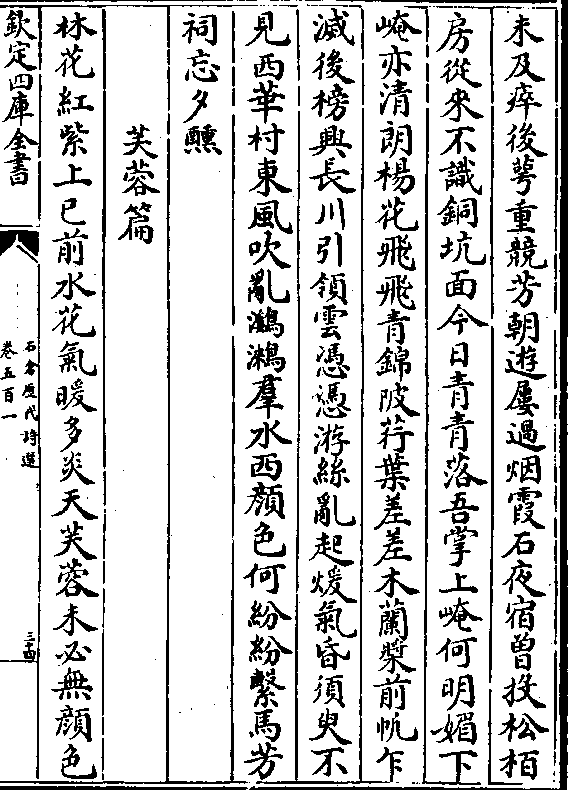 未及瘁後萼重競芳朝遊屢過烟霞石夜宿曽投松栢
房從來不識銅坑面今日青青落吾掌上崦何明媚下
崦亦清朗楊花飛飛青錦陂荇葉差差木蘭槳前帆乍
滅後榜興長川引領雲憑憑游絲亂起煖氣昏須臾不
見西華村東風吹亂鸂鶒羣水西顔色何紛紛繫馬芳
祠忘夕醺
芙蓉篇
林花紅紫上已前水花氣暖多炎天芙蓉未必無顔色
欽定四庫全書
石倉歷代詩選
卷五百一
三十四